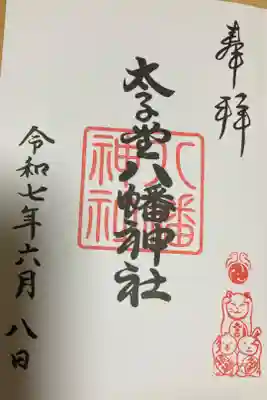 奉拝
太子堂八幡神社
八幡神社
令和七年六月八日